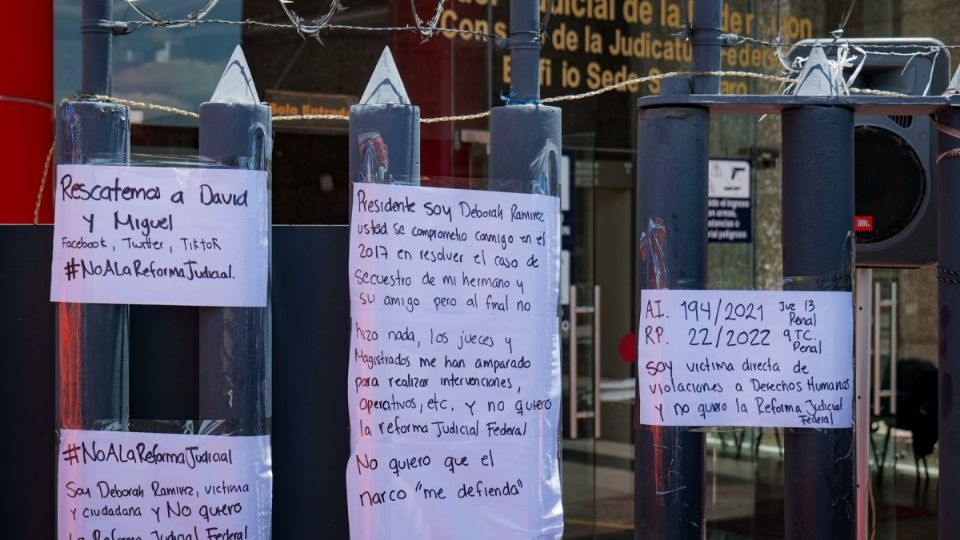 Judicial de la
Consejo de la Judicatura Federal
Edificio Sede
Solo Entrada
Rescatemos a David
y Miguel
Facebook, Twitter, TikToK
#NoALaReformaJudicial.
#NoALaReformaJudicial
Soy Deborah Ramirez, victima
y ciudadana y No quiero
la Reforma Judicial Federal
Presidente soy Deborah Ramirez
usted se comprometio conmigo en el
2017 en resolver el caso de
Secuestro de mi hermano y
su amigo pero al final no
hizo nada, los jueces y
Magistrados me han amparado
para realizar intervenciones,
operativos, etc. y no quiero
la reforma Judicial Federal
No quiero que el
narco "me defienda"
A.I. 194/2021 Juz 13
Penal
R.P. 22/2022 9 T.C.
Penal
Soy victima directa de
violaciones a Derechos Humanos
y no quiero la Reforma Judicial
Federal
JBL